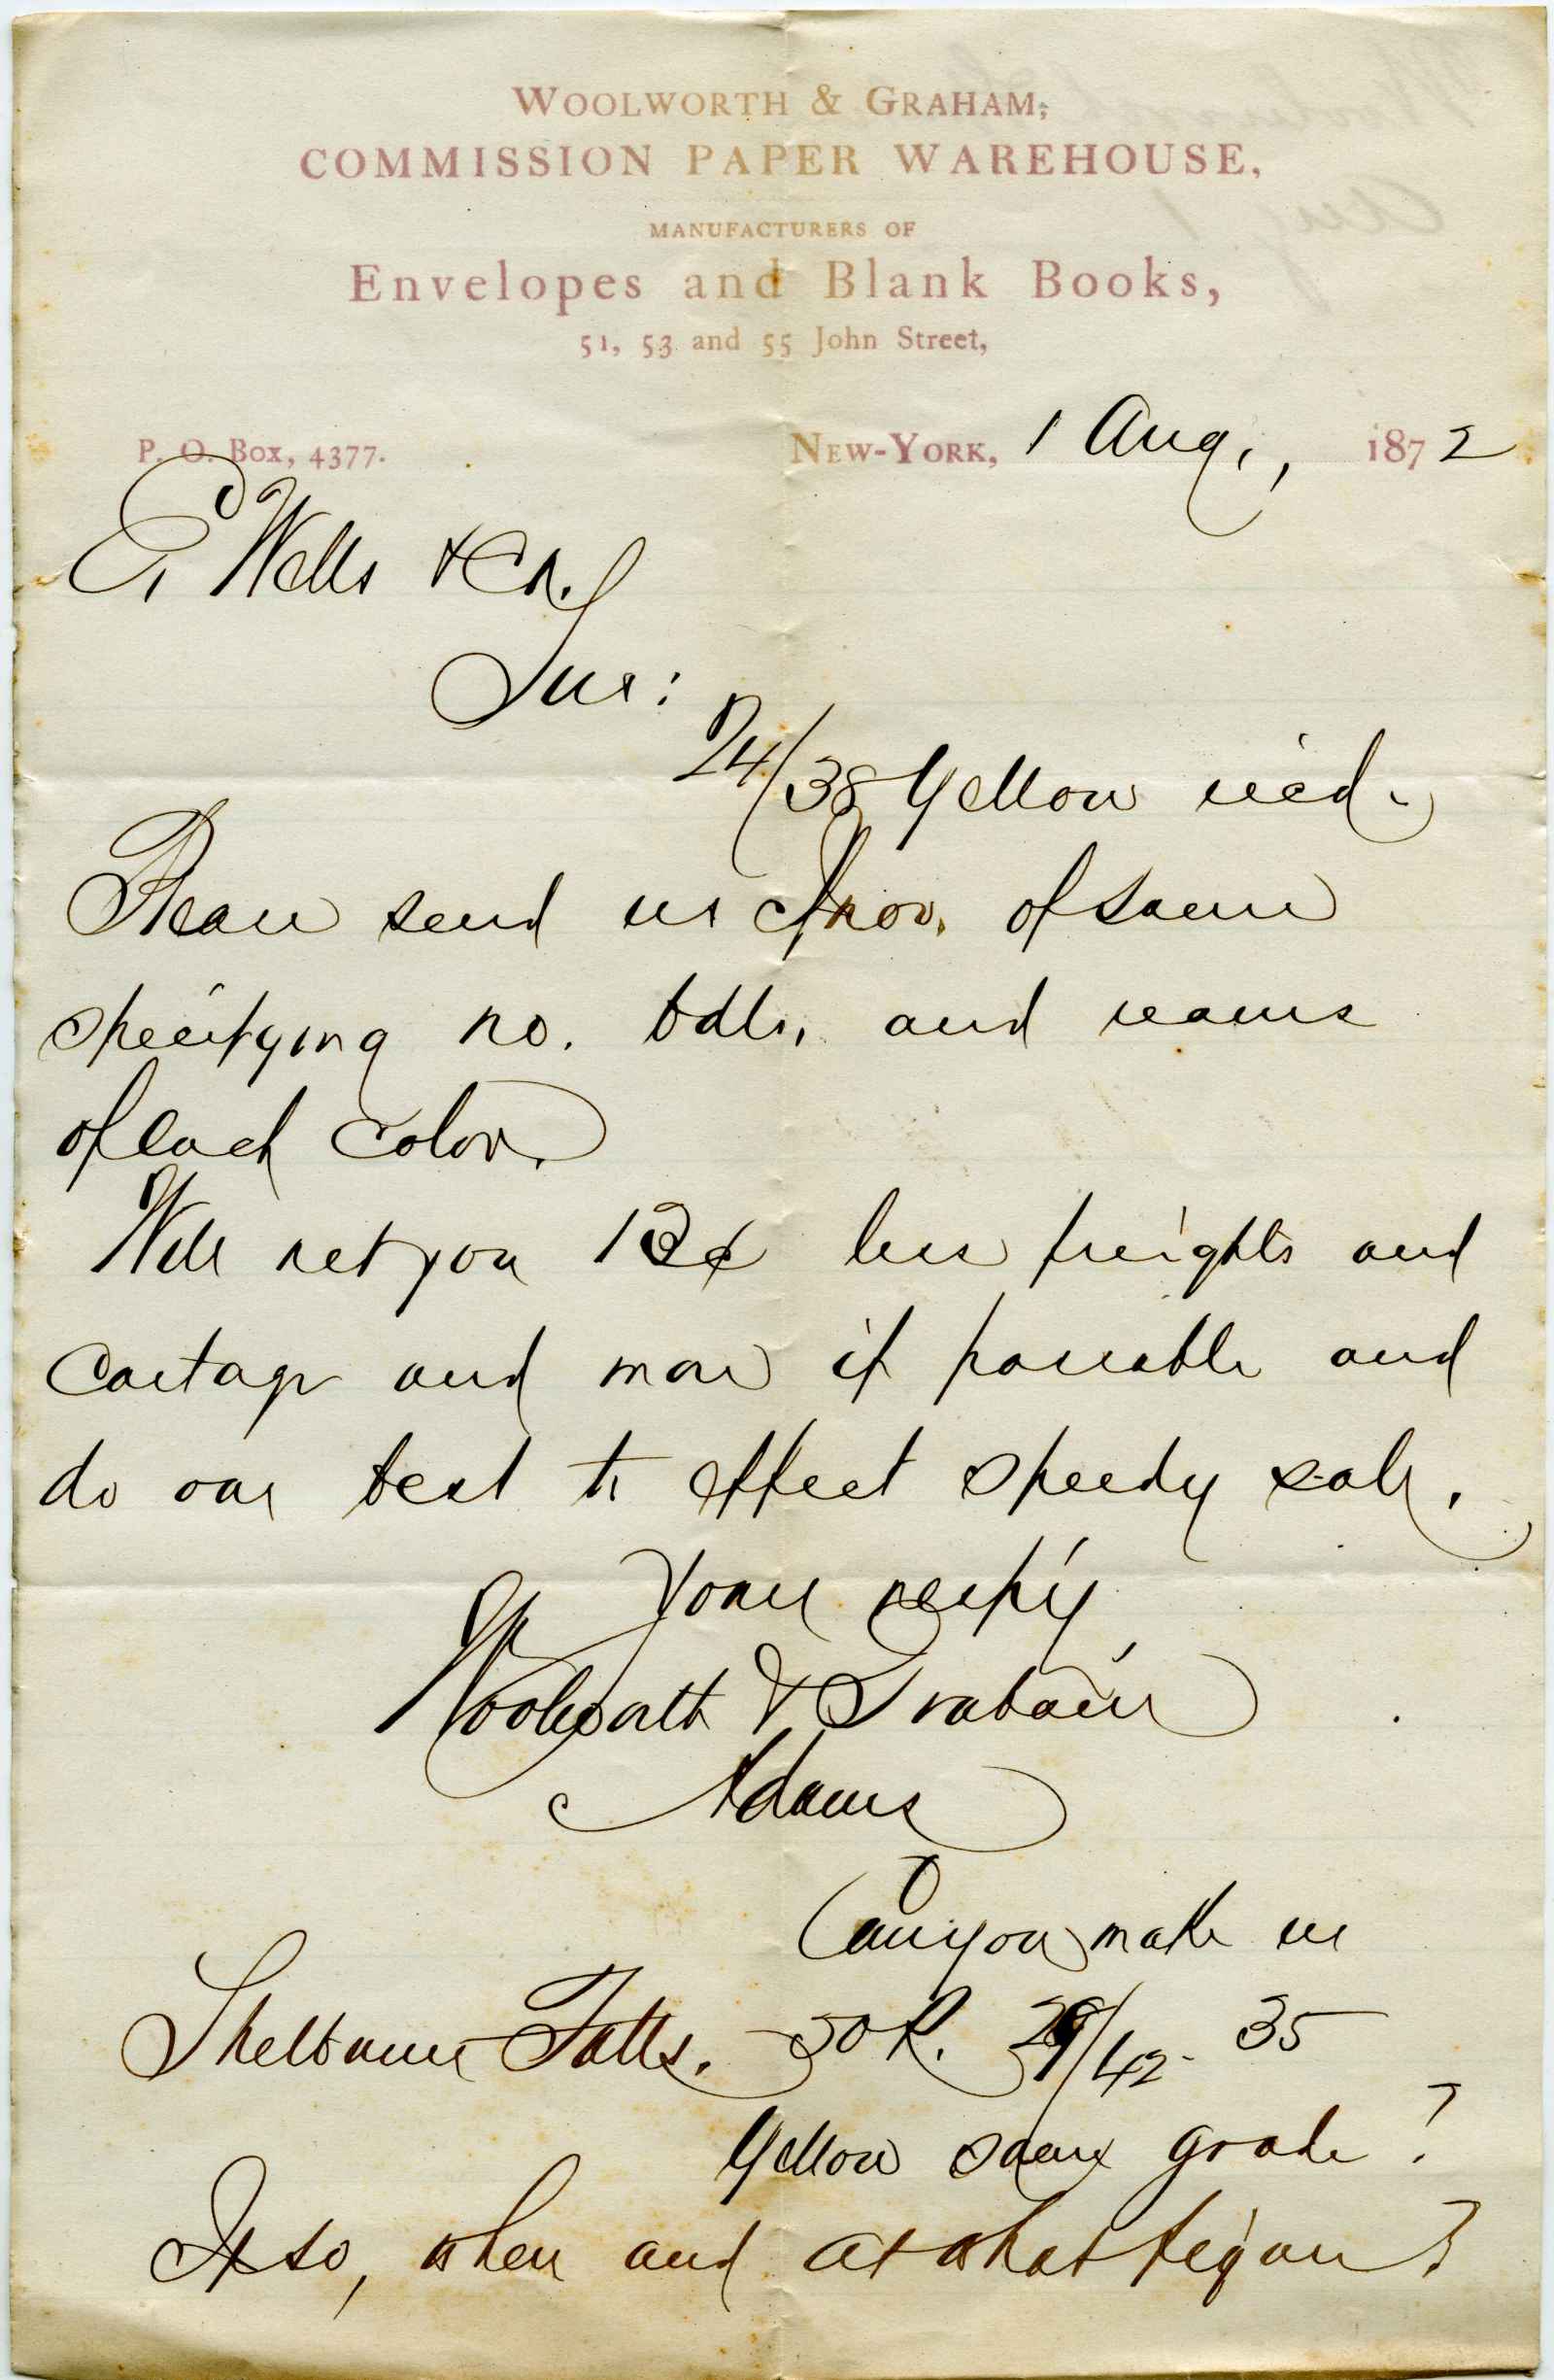 WOOLWORTH & GRAHAM,
COMMISSION PAPER WAREHOUSE,
MANUFACTURERS OF
Envelopes and Blank Books,
51, 53 and 55 John Street,
P. O. Box, 4377. NEW-YORK, 1 Aug., 1872
E. Wells & Co.
Sirs:
24/38 Yellow rec'd.
Please send us Invo. of same
specifying no. bdls. and reams
of each color.
Will net you 13¢ less freights and
cartage and more if possible and
do our best to effect speedy sale.
Yours resp'y
Woolworth & Graham
Adams
Can you make us
Shelburne Falls. 50 R. 29/42 - 35
Yellow same grade?
If so, when and at what figure?